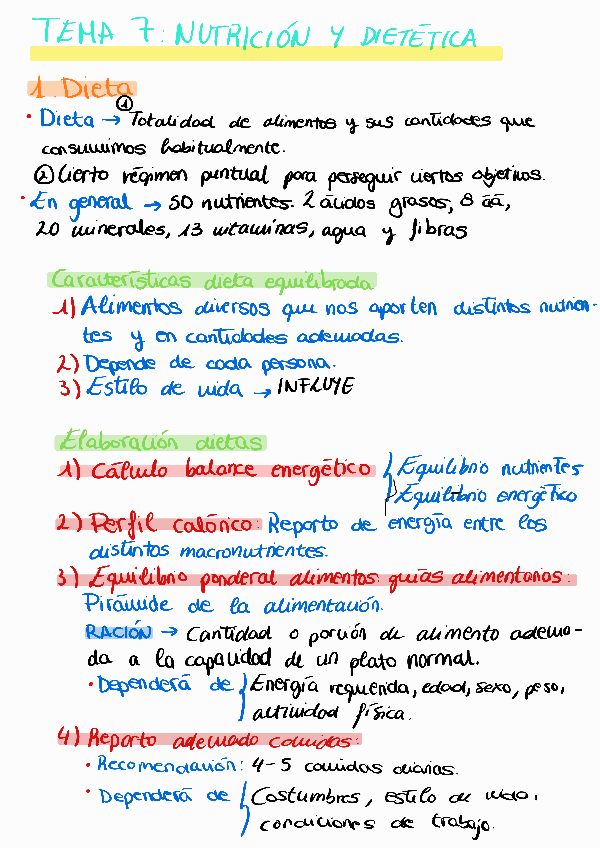 TEMA 7: NUTRICIÓN Y DIETÉTICA
1. Dieta
• Dieta → ① Totalidad de alimentos y sus cantidades que
consumimos habitualmente.
② Cierto régimen puntual para perseguir ciertos objetivos.
• En general → 50 nutrientes. 2 ácidos grasos, 8 āā,
20 minerales, 13 vitaminas, agua y fibras
Características dieta equilibrada
1) Alimentos diversos que nos aporten distintos nutrien-
tes y en cantidades adecuadas.
2) Depende de cada persona.
3) Estilo de vida → INFLUYE
Elaboración dietas
1) Cálculo balance energético { Equilibrio nutrientes
Equilibrio energético
2) Perfil calórico: Reporto de energía entre los
distintos macronutrientes.
3) Equilibrio ponderal alimentos: guías alimentarias:
Pirámide de la alimentación.
RACIÓN → Cantidad o porción de alimento adecua-
da a la capacidad de un plato normal.
• Dependerá de { Energía requerida, edad, sexo, peso,
actividad física.
4) Reporto adecuado comidas:
• Recomendación: 4-5 comidas diarias.
• Dependerá de { Costumbres, estilo de vida,
condiciones de trabajo.